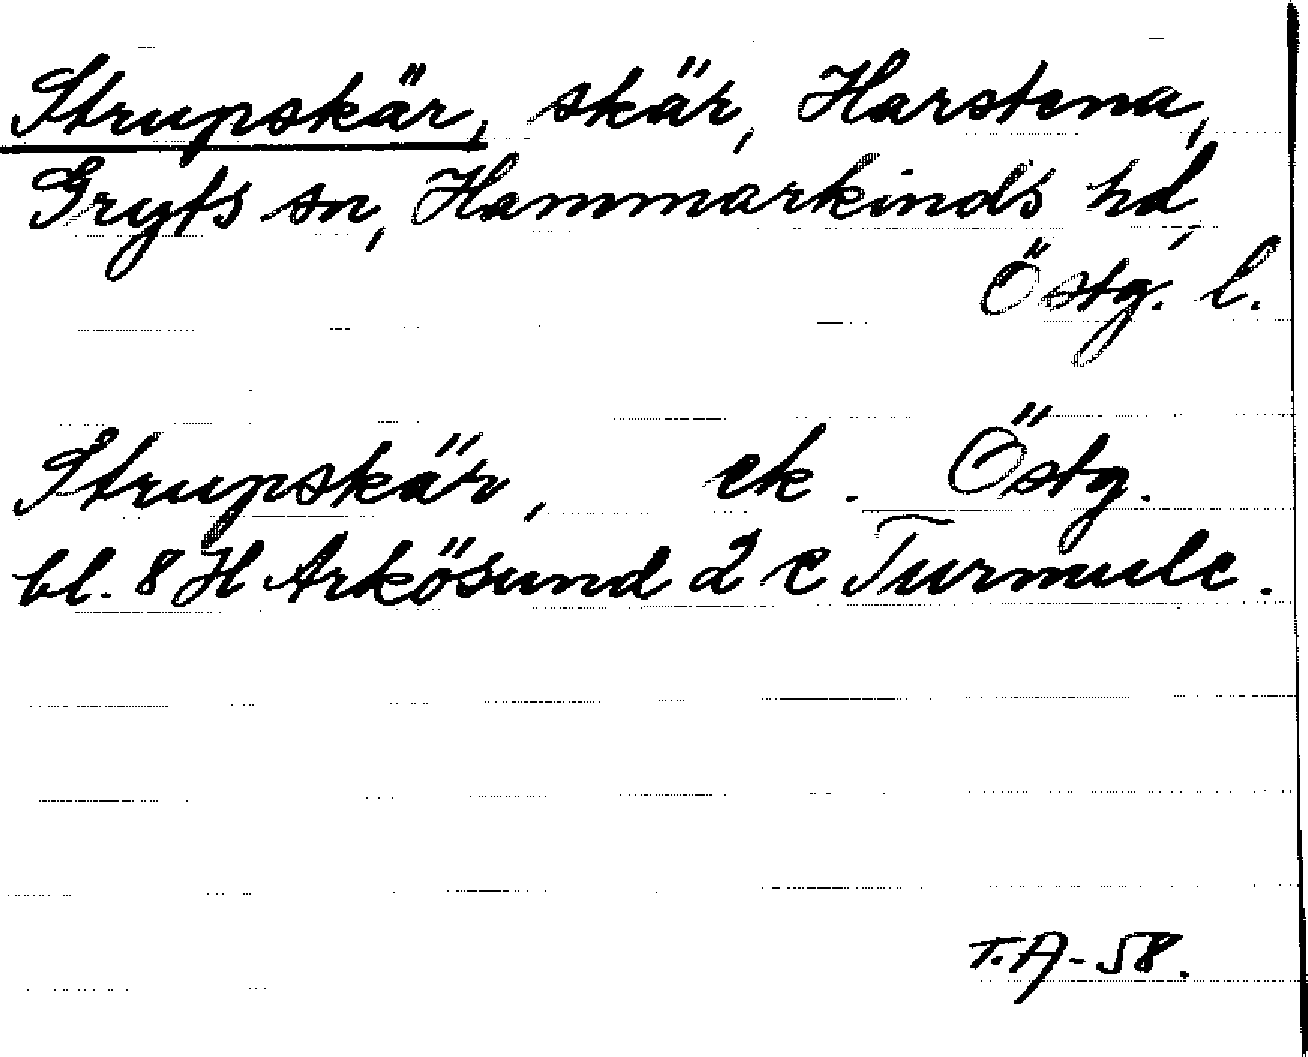 Strupskär, skär, Harstena,
Gryts sn, Hammarkinds hd,
Östg. l.
Strupskär, ek. Östg.
bl. 8 H Arkösund 2 c Turmule.
T.A-58.